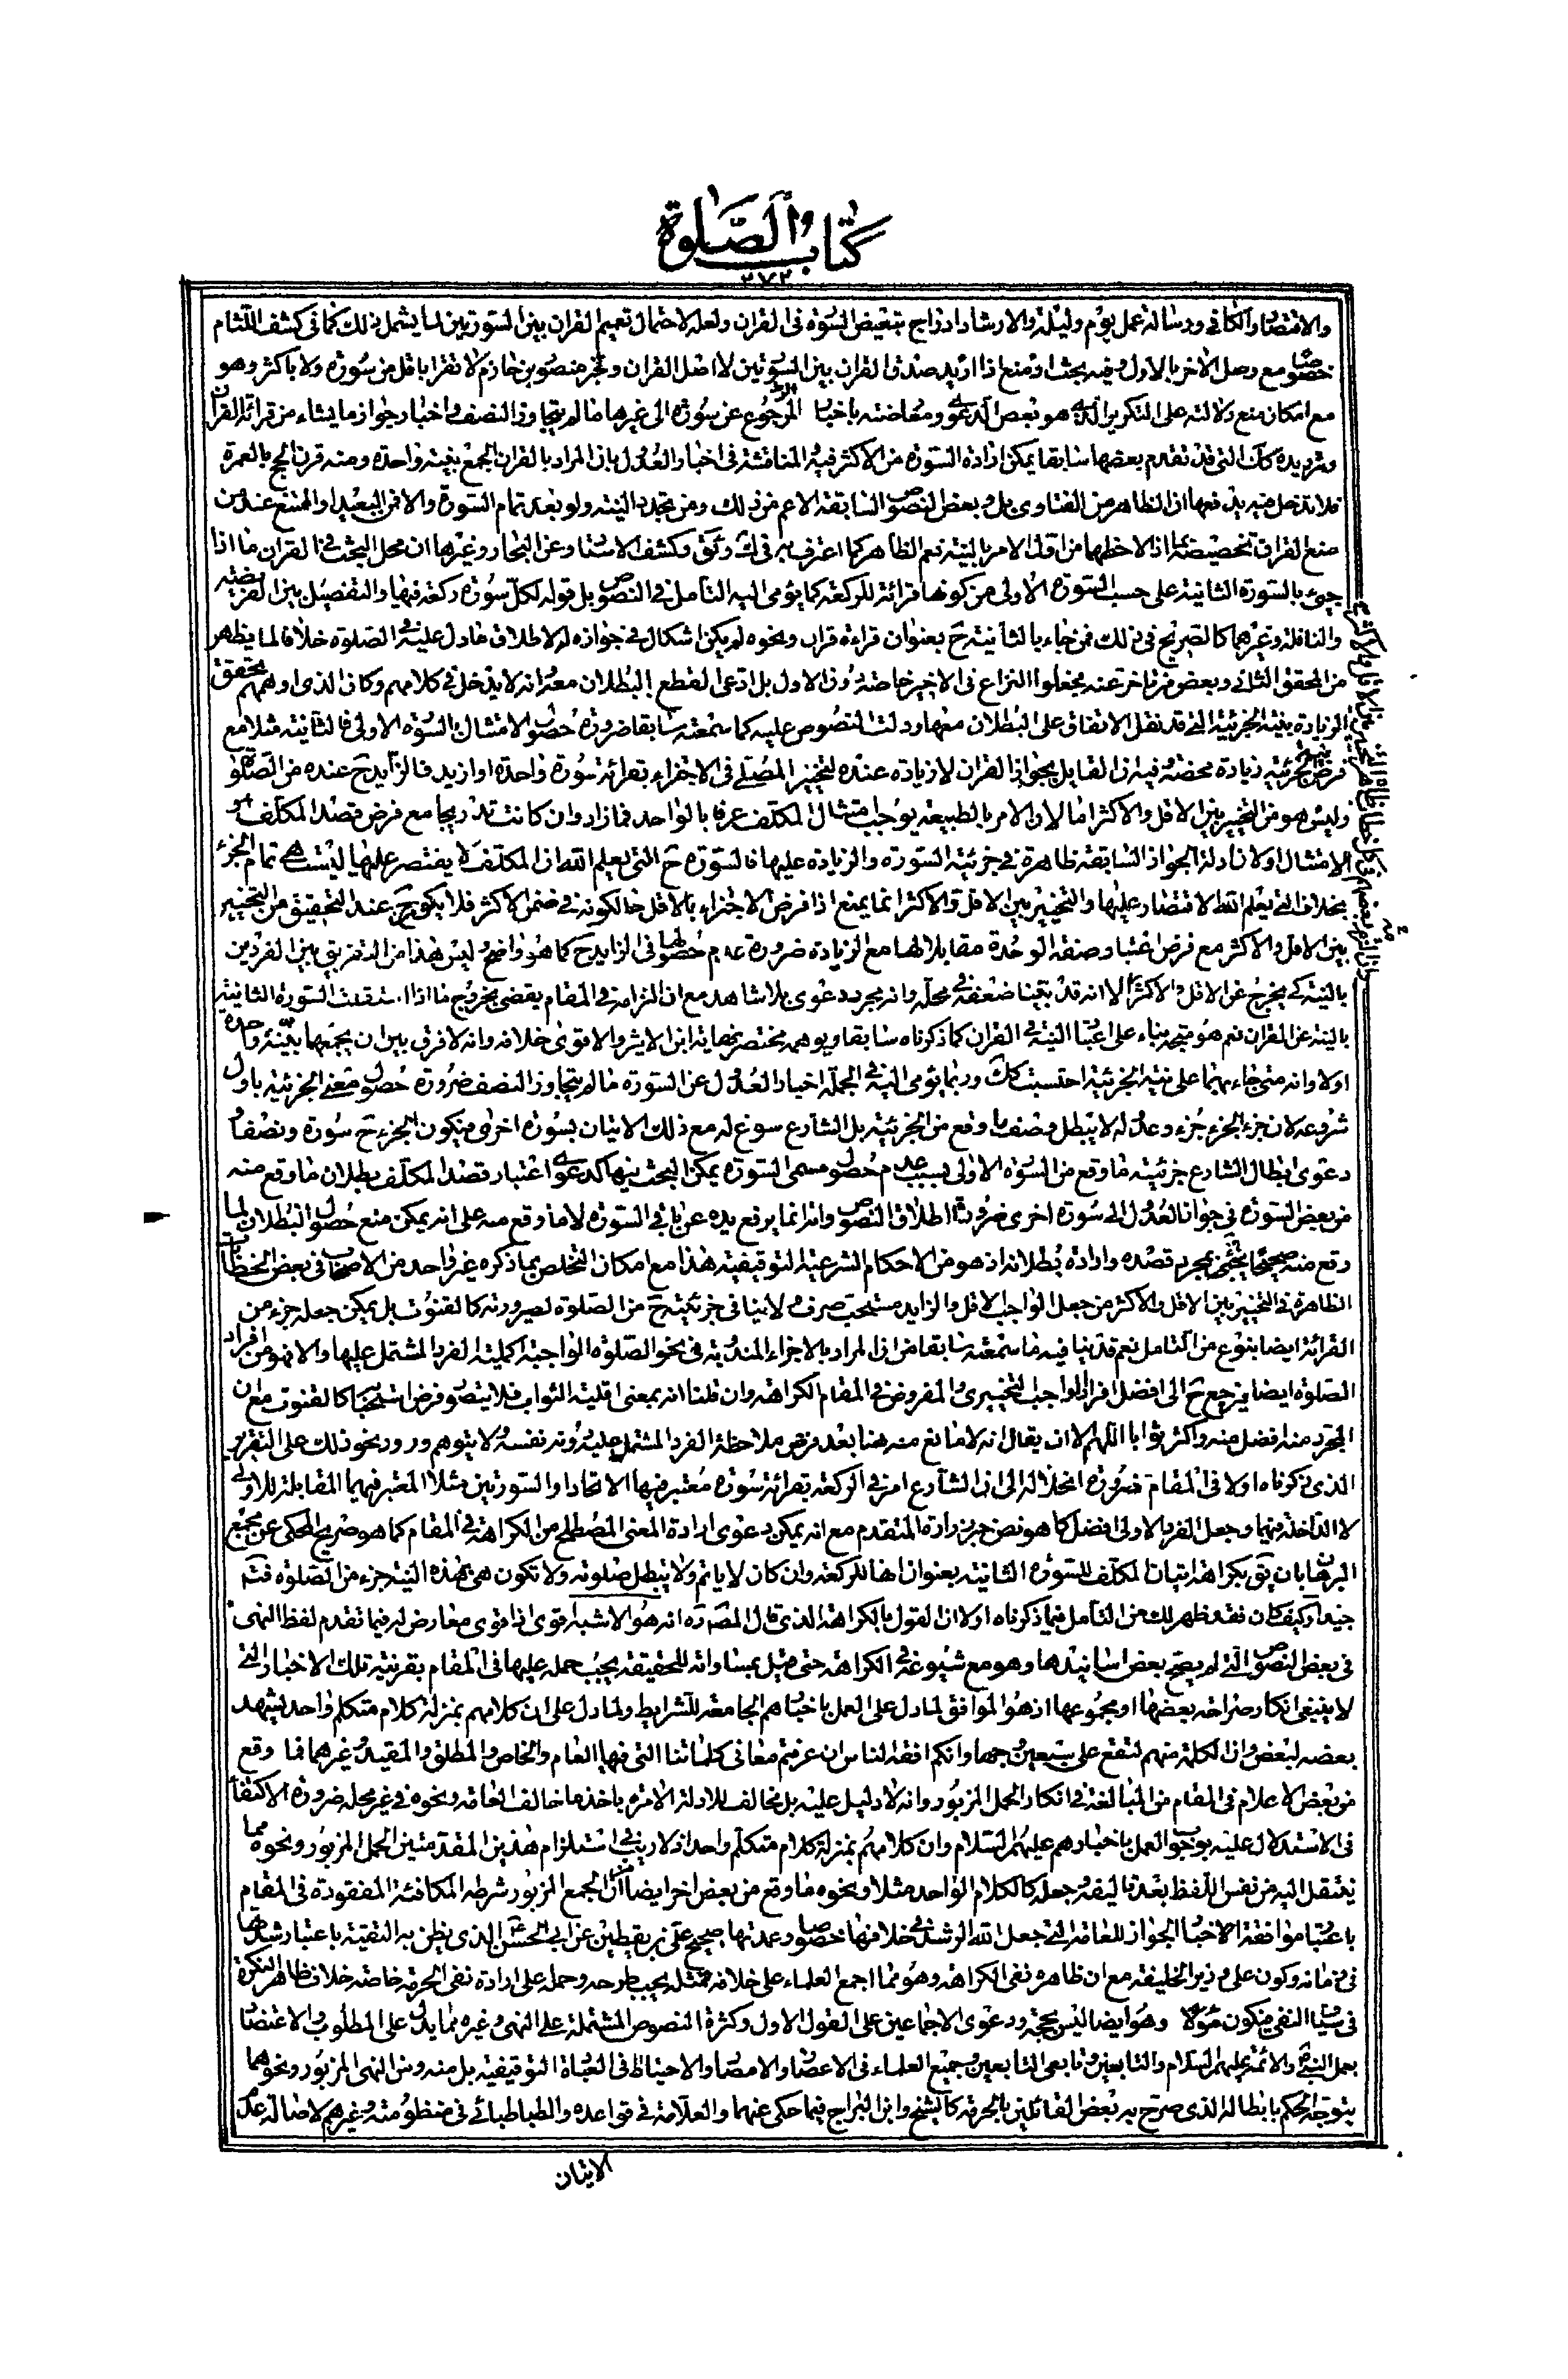 كتاب الصلوة
٢٧٢
والاقتصاد والكافى ورسالة عمل يوم وليلة والارشاد ادراج تبعيض السورة فى القران ولعله لاحتمال تعميم القران بين السورتين لما يشمل ذلك كما فى كشف اللثام
خصوصا مع وصل الاخر بالاول وفيه بحث او منع اذا اريد صدق القران بين السورتين لا اصل القران وخبر منصور بن حازم لا تقرا باقل من سورة ولا باكثر وهو
مع امكان منع دلالته على التكرير الذى هو بعض المدعى ومعارضته باخبار الرجوع عن سورة الى غيرها ما لم يتجاوز النصف واخبار جواز ما يشاء من قرائة القران
وترديده كك التى قد تقدم بعضها سابقا يمكن ارادة السورة من الاكثر فيه المناقشة فى اخبار العدول بان المراد بالقران الجمع بنية واحدة ومنه قرن الحج بالعمرة
فلا تدخل فيه يدفعها ان الظاهر من الفتاوى بل وبعض النصوص السابقة الاعم من ذلك ومن تجدد النية ولو بعد تمام السورة والا فمن البعيد او الممتنع عند من
منع القران تخصيصه بما اذا لاحظهما من اول الامر بالنية نعم الظاهر كما اعترف به فى ك وئق وكشف الاستاد وعن البحار وغيرها ان محل البحث فى القران ما اذا
جىء بالسورة الثانية على حسب السورة الاولى من كونها قرائة للركعة كما يومى اليه التامل فى النصوص بل قوله لكل سورة ركعة فيها والتفصيل بين الفريضة
والنافلة وغيرهما كالصريح فى ذلك فمن جاء بالثانية ح بعنوان قراءة قران ونحوه لم يكن اشكال فى جوازه له لاطلاق ما دل عليه فى الصلوة خلافا لما يظهر
من المحقق الثانى وبعض من تاخر عنه فجعلوا النزاع فى الاخير خاصة دون الاول بل ادعى القطع بالبطلان معه وانه لا يدخل فى كلامهم وكان الذى اوهمهم تحقق
الزيادة بنية الجزئية التى قد نقل الاتفاق على البطلان معها ودلت النصوص عليه كما سمعته سابقا ضرورة حصول الامتثال بالسورة الاولى فالثانية مثلا مع
فرض نية الجزئية زيادة محضة وفيه ان القايل بجواز القران لا زيادة عنده لتخيير المصلى فى الاجتزاء بقرائة سورة واحدة او ازيد فالزايد ح عنده من الصلوة
وليس هو من التخيير بين الاقل والاكثر اما لان الامر بالطبيعة يوجب امتثال المكلف عرفا بالواحد فما زاد وان كانت تدريجا مع فرض قصد المكلف
الامتثال اولا ان ادلة الجواز السابقة ظاهرة فى جزئية السورة والزيادة عليها فالسورة ح التى يعلم الله ان المكلف لا يقتصر عليها ليست هى تمام الجزء
بخلاف التى يعلم الله الاقتصار عليها والتخيير بين الاقل والاكثر انما يمنع اذا فرض الاجتزاء بالاقل حال كونه فى ضمن الاكثر فلا يكون ح عند التحقيق من التخيير
بين الاقل والاكثر مع فرض اعتبار صفة الوحدة مقابلا لها مع الزيادة ضرورة عدم حصولها فى الزايد ح كما هو واضح وليس هذا من التفريق بين الفردين
بالنية كى يخرج عن الاقل والاكثر الا انه قد بينا ضعفه فى محله وانه مجرد دعوى بلا شاهد مع ان التزامه فى المقام يقضى بخروج ما اذا استقلت السورة الثانية
بالنية عن القران نعم هو متجه بناء على اعتبار النية فى القران كما ذكرناه سابقا ويوهمه مختصر نهاية ابن الاثير والاقوى خلافه وانه لا فرق بين ان يجمعهما بنية واحدة
اولا وانه متى جاء بهما على نية الجزئية احتسبت كك وربما يؤمى اليه فى الجملة اخبار العدول عن السورة ما لم يتجاوز النصف ضرورة حصول معنى الجزئية باول
شروعه لان جزء الجزء جزء وعدوله لا يبطل وصف ما وقع من الجزئية بل الشارع سوغ له مع ذلك الاتيان بسورة اخرى فيكون الجزء ح سورة ونصفا و
دعوى ابطال الشارع جزئية ما وقع من السورة الاولى بسبب عدم حصول مسمى السورة يمكن البحث فيها كدعوى اعتبار قصد المكلف بطلان ما وقع منه
من بعض السورة فى جواز العدول الى سورة اخرى ضرورة اطلاق النصوص وانه انما يرفع يده عن باقى السورة لا ما وقع منه على انه يمكن منع حصول البطلان لما
وقع منه صحيحا بمجرد قصده وارادة بطلانه اذ هو من الاحكام الشرعية التوقيفية هذا مع امكان التخلص بما ذكره غير واحد من الاصحاب فى بعض الخطابات
الظاهرة فى التخيير بين الاقل والاكثر من جعل الواجب الاقل والزايد مستحب صرف ولا ينافى جزئيته ح من الصلوة لصيرورته كالقنوت بل يمكن جعله جزء من
القرائة ايضا بنوع من التامل نعم قد ينافيه ما سمعته سابقا من ان المراد بالاجزاء المندوبة فى نحو الصلوة الواجبة كملية الفرد المشتمل عليها والا فهو من افراد
الصلوة ايضا فيرجع ح الى افضل افراد الواجب التخييرى والمفروض فى المقام الكراهة وان قلنا انه بمعنى اقلية الثواب فلا يتصور فرض استحبابها كالقنوت مع ان
المجرد منه افضل منه واكثر ثوابا اللهم الا ان يقال انه لا مانع منه هنا بعد فرض ملاحظة الفرد المشتمل عليه دونه نفسه ولا يتوهم ورود نحو ذلك على التقرير
الذى ذكرناه اولا فى المقام ضرورة انحلاله الى ان الشارع امر فى الركعة بقرائة سورة معتبر فيها الاتحاد او السورتين مثلا المعتبر فيهما المقابلة للاولى
لا الداخلة فيهما وجعل الفرد الاولى افضل كما هو نص خبر زرارة المتقدم مع انه يمكن دعوى ارادة المعنى المصطلح من الكراهة فى المقام كما هو صريح المحكى عن مجمع
البرهان بان يق بكراهة اتيان المكلف للسورة الثانية بعنوان انها للركعة وان كان لا ياثم ولا يبطل صلوته ولا تكون هى بهذه النية جزء من الصلوة فتم
جيدا وكيف كان فقد ظهر لك من التامل فيما ذكرناه اولا ان القول بالكراهة الذى قال المصه ره انه هو الاشبه قوى اذ اقوى معارض له فيما تقدم لفظ النهى
فى بعض النصوص التى لم يصح بعض اسانيدها وهو مع شيوعه فى الكراهة حتى قيل بمساواته للحقيقة يجب حمله عليها فى المقام بقرينة تلك الاخبار التى
لا ينبغى انكار صراحة بعضها او مجموعها اذ هو الموافق لما دل على العمل باخبارهم الجامعة للشرايط ولما دل على ان كلامهم بمنزلة كلام متكلم واحد ليشهد
بعضه لبعض وان الكلمة منهم لتقع على سبعين وجها وانكم افقه الناس ان عرفتم معانى كلماتنا التى فيها العام والخاص والمطلق والمقيد وغيرهما فما وقع
من بعض الاعلام فى المقام من المبالغة فى انكار الحمل المزبور وانه لا دليل عليه بل مخالف للادلة الامره باخذ ما خالف العامة ونحوه فى غير محله ضرورة الاكتفاء
فى الاستدلال عليه بوجوب العمل باخبارهم عليهم السلام وان كلامهم بمنزلة كلام متكلم واحد اذ لا ريب فى استلزام هذين المقدمتين الحمل المزبور ونحوه مما
ينتقل اليه من نفس اللفظ بعد تاليفه وجعله كالكلام الواحد مثلا ونحوه ما وقع من بعض اخر ايضا من ان الجمع المزبور شرطه المكافئة المفقودة فى المقام
باعتبار موافقة الاخبار الجواز للعامة التى جعل الله الرشد فى خلافها خصوصا وعمدتها صحيح على بن يقطين عن ابى الحسن الذى يظن به التقية باعتبار شدتها
فى زمانه وكون على وزير الخليفة مع ان ظاهره نفى الكراهة وهو مما اجمع العلماء على خلافه فمثله يجب طرحه وحمله على ارادة نفى الحرمة خاصة خلاف ظاهر النكرة
فى سياق النفى فيكون مؤولا وهو ايضا ليس بحجة ودعوى الاجماعين على القول الاول وكثرة النصوص المشتملة على النهى وغيره مما يدل على المطلوب والاعتضاد
بعمل النبى والائمة عليهم السلام والتابعين وتابعى التابعين وجميع العلماء فى الاعصار والامصار والاحتياط فى العبادة التوقيفية بل منه ومن النهى المزبور ونحوهما
يتوجه الحكم بابطاله الذى صرح به بعض القائلين بالحرمة كالشيخ وابن البراج فيما حكى عنهما والعلامة فى قواعده والطباطبائى فى منظومته وغيرهم لاصالة عدم
الاتيان